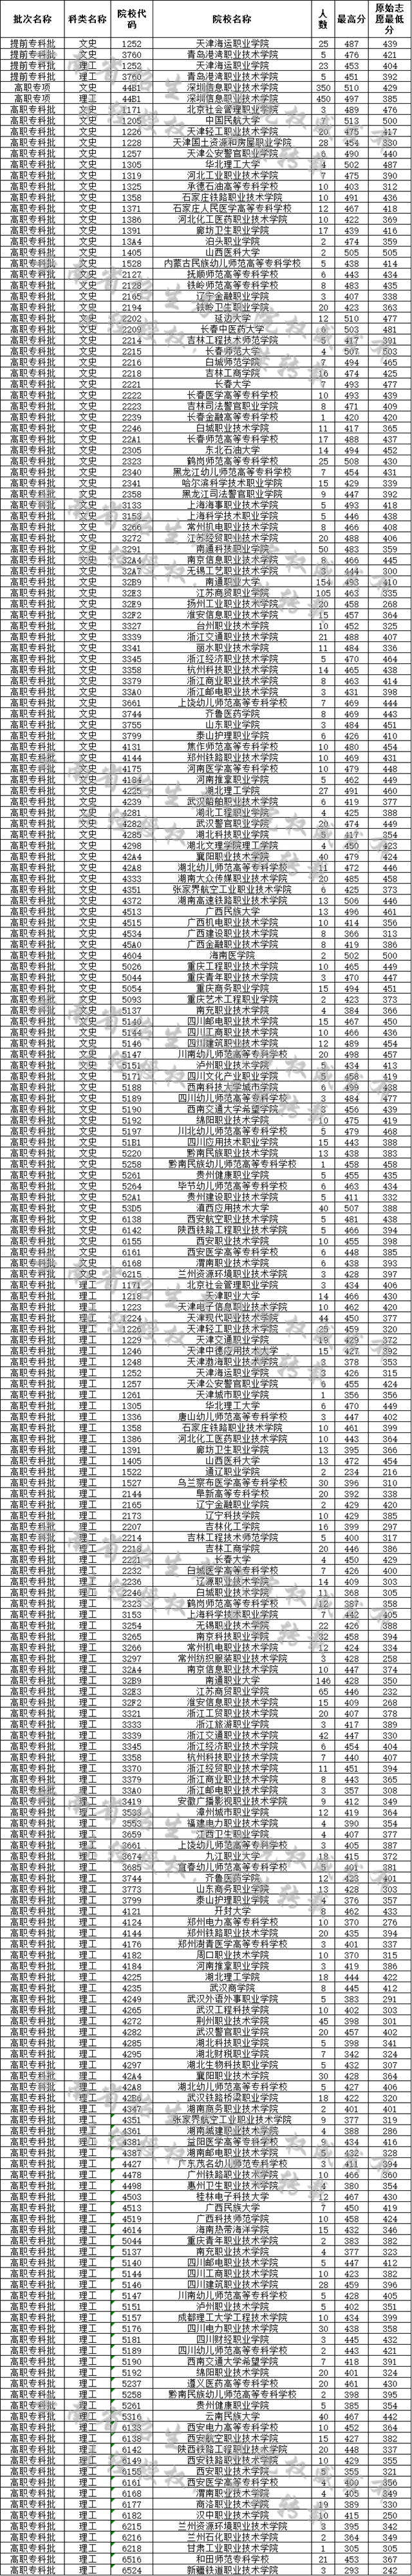 批次名称 科类名称 院校代码 院校名称 人数 最高分 原始志愿最低分
提前专科批 文史 1252 天津海运职业学院 25 487 439
提前专科批 文史 3760 青岛港湾职业技术学院 5 476 421
提前专科批 理工 1252 天津海运职业学院 23 453 404
提前专科批 理工 3760 青岛港湾职业技术学院 5 451 392
高职专项 文史 44B1 深圳信息职业技术学院 350 510 429
高职专项 理工 44B1 深圳信息职业技术学院 450 497 385
高职专科批 文史 1171 北京社会管理职业学院 3 489 476
高职专科批 文史 1205 中国民航大学 7 513 500
高职专科批 文史 1226 天津轻工职业技术学院 20 475 417
高职专科批 文史 1228 天津国土资源和房屋职业学院 28 454 330
高职专科批 文史 1257 天津公安警官职业学院 6 490 440
高职专科批 文史 1305 华北理工大学 4 502 487
高职专科批 文史 1319 河北工业职业技术学院 7 475 390
高职专科批 文史 1325 承德石油高等专科学校 10 403 312
高职专科批 文史 1358 石家庄铁路职业技术学院 10 491 436
高职专科批 文史 1371 石家庄人民医学高等专科学校 12 467 418
高职专科批 文史 1386 河北化工医药职业技术学院 10 422 369
高职专科批 文史 1391 廊坊卫生职业学院 17 439 416
高职专科批 文史 13A4 泊头职业学院 2 474 359
高职专科批 文史 1405 山西医科大学 2 505 505
高职专科批 文史 1528 内蒙古民族幼儿师范高等专科学校 5 438 414
高职专科批 文史 2127 抚顺师范高等专科学校 6 443 434
高职专科批 文史 2128 铁岭师范高等专科学校 8 483 435
高职专科批 文史 2165 辽宁金融职业学院 3 407 338
高职专科批 文史 2194 铁岭卫生职业学院 20 423 363
高职专科批 文史 2202 延边大学 12 510 477
高职专科批 文史 2209 长春中医药大学 6 503 481
高职专科批 文史 2214 吉林工程技术师范学院 5 417 391
高职专科批 文史 2215 长春师范大学 4 507 503
高职专科批 文史 2216 白城师范学院 7 494 465
高职专科批 文史 2218 吉林工商学院 16 474 425
高职专科批 文史 2221 长春大学 7 493 477
高职专科批 文史 2222 长春医学高等专科学校 10 493 439
高职专科批 文史 2223 吉林司法警官职业学院 8 471 409
高职专科批 文史 2239 长春金融高等专科学校 1 420 420
高职专科批 文史 2246 白城职业技术学院 11 417 365
高职专科批 文史 22A1 长春师范高等专科学校 17 488 437
高职专科批 文史 2305 东北石油大学 14 494 452
高职专科批 文史 2323 鹤岗师范高等专科学校 25 508 430
高职专科批 文史 2340 黑龙江幼儿师范高等专科学校 7 454 431
高职专科批 文史 2341 哈尔滨科学技术职业学院 15 429 339
高职专科批 文史 2358 黑龙江司法警官职业学院 9 447 392
高职专科批 文史 3133 上海海事职业技术学院 5 493 418
高职专科批 文史 3153 上海科学技术职业学院 5 446 438
高职专科批 文史 3266 常州机电职业技术学院 8 466 408
高职专科批 文史 3272 江苏经贸职业技术学院 20 488 406
高职专科批 文史 3291 南通科技职业学院 50 483 359
高职专科批 文史 32A4 南京信息职业技术学院 8 466 445
高职专科批 文史 32A7 无锡工艺职业技术学院 3 444 300
高职专科批 文史 32B9 南通职业大学 154 493 410
高职专科批 文史 32E3 江苏商贸职业学院 105 463 335
高职专科批 文史 32E9 扬州工业职业技术学院 20 458 268
高职专科批 文史 32F2 淮安信息职业技术学院 15 457 364
高职专科批 文史 3327 台州职业技术学院 10 452 325
高职专科批 文史 3339 浙江交通职业技术学院 21 488 407
高职专科批 文史 3341 丽水职业技术学院 11 484 336
高职专科批 文史 3345 浙江经济职业技术学院 5 470 464
高职专科批 文史 3358 杭州科技职业技术学院 14 465 438
高职专科批 文史 3379 浙江商业职业技术学院 8 463 414
高职专科批 文史 33A0 浙江邮电职业技术学院 3 431 398
高职专科批 文史 3661 上饶幼儿师范高等专科学校 7 469 444
高职专科批 文史 3744 齐鲁医药学院 8 469 443
高职专科批 文史 3755 山东职业学院 3 484 451
高职专科批 文史 3799 泰山护理职业学院 6 426 410
高职专科批 文史 4131 焦作师范高等专科学校 10 480 454
高职专科批 文史 4144 郑州铁路职业技术学院 10 469 431
高职专科批 文史 4175 河南医学高等专科学校 10 479 448
高职专科批 文史 4184 河南推拿职业学院 5 462 449
高职专科批 文史 4225 湖北理工学院 27 491 460
高职专科批 文史 4239 武汉船舶职业技术学院 6 419 377
高职专科批 文史 4281 湖北工程职业学院 4 425 388
高职专科批 文史 4282 武汉警官职业学院 20 474 449
高职专科批 文史 4285 湖北科技职业学院 5 417 354
高职专科批 文史 4298 湖北文理学院理工学院 4 450 423
高职专科批 文史 42A4 襄阳职业技术学院 40 479 424
高职专科批 文史 42A8 湖北幼儿师范高等专科学校 11 472 446
高职专科批 文史 4333 湖南大众传媒职业技术学院 20 485 458
高职专科批 文史 4351 张家界航空工业职业技术学院 6 425 373
高职专科批 文史 4372 湖南高速铁路职业技术学院 13 506 446
高职专科批 文史 4513 广西民族大学 13 496 461
高职专科批 文史 4515 广西机电职业技术学院 10 414 356
高职专科批 文史 4534 广西建设职业技术学院 8 366 313
高职专科批 文史 45A0 广西金融职业技术学院 8 419 386
高职专科批 文史 4604 海南医学院 2 502 500
高职专科批 文史 5026 重庆工程职业技术学院 10 465 449
高职专科批 文史 5044 重庆青年职业技术学院 3 470 447
高职专科批 文史 5054 重庆商务职业学院 15 494 451
高职专科批 文史 5093 重庆艺术工程职业学院 2 423 373
高职专科批 文史 5137 南充职业技术学院 4 384 366
高职专科批 文史 5140 四川邮电职业技术学院 15 467 450
高职专科批 文史 5144 四川工商职业技术学院 10 466 436
高职专科批 文史 5146 四川建筑职业技术学院 12 489 454
高职专科批 文史 5147 川南幼儿师范高等专科学校 20 498 457
高职专科批 文史 5151 泸州职业技术学院 5 434 413
高职专科批 文史 5171 四川文化产业职业学院 5 458 419
高职专科批 文史 5188 西南科技大学城市学院 6 499 438
高职专科批 文史 5189 四川幼儿师范高等专科学校 3 484 477
高职专科批 文史 5190 西南交通大学希望学院 3 456 439
高职专科批 文史 5192 绵阳职业技术学院 10 475 419
高职专科批 文史 5197 川北幼儿师范高等专科学校 5 479 468
高职专科批 文史 51B1 四川应用技术职业学院 15 443 388
高职专科批 文史 5220 黔南民族职业技术学院 13 438 383
高职专科批 文史 5258 黔南民族幼儿师范高等专科学校 1 458 458
高职专科批 文史 5261 贵州健康职业学院 5 455 435
高职专科批 文史 5264 毕节幼儿师范高等专科学校 6 463 434
高职专科批 文史 52A1 贵州建设职业技术学院 5 411 332
高职专科批 文史 53D5 滇西应用技术大学 40 507 388
高职专科批 文史 6138 西安航空职业技术学院 5 481 438
高职专科批 文史 6142 陕西铁路工程职业技术学院 5 466 394
高职专科批 文史 6155 西安职业技术学院 10 455 398
高职专科批 文史 6161 西安医学高等专科学校 6 448 385
高职专科批 文史 6168 渭南职业技术学院 6 438 393
高职专科批 文史 6215 兰州资源环境职业技术学院 3 428 397
高职专科批 理工 1171 北京社会管理职业学院 3 434 406
高职专科批 理工 1218 天津职业大学 14 466 430
高职专科批 理工 1223 天津电子信息职业技术学院 10 462 420
高职专科批 理工 1224 天津现代职业技术学院 44 450 377
高职专科批 理工 1226 天津轻工职业技术学院 29 459 320
高职专科批 理工 1229 天津交通职业学院 19 429 372
高职专科批 理工 1246 天津中德应用技术大学 15 427 392
高职专科批 理工 1248 天津渤海职业技术学院 3 378 353
高职专科批 理工 1252 天津海运职业学院 3 426 315
高职专科批 理工 1257 天津公安警官职业学院 6 455 424
高职专科批 理工 1261 天津城市职业学院 1 356 356
高职专科批 理工 1305 华北理工大学 6 470 449
高职专科批 理工 1336 唐山幼儿师范高等专科学校 3 447 402
高职专科批 理工 1358 石家庄铁路职业技术学院 10 461 399
高职专科批 理工 1386 河北化工医药职业技术学院 10 443 364
高职专科批 理工 1391 廊坊卫生职业学院 13 395 366
高职专科批 理工 1405 山西医科大学 13 472 454
高职专科批 理工 1522 通辽职业学院 2 234 216
高职专科批 理工 1527 乌兰察布医学高等专科学校 30 396 310
高职专科批 理工 2144 阜新高等专科学校 20 392 338
高职专科批 理工 2165 辽宁金融职业学院 2 429 420
高职专科批 理工 2173 辽宁科技学院 10 429 385
高职专科批 理工 2207 吉林化工学院 16 399 297
高职专科批 理工 2214 吉林工程技术师范学院 5 400 317
高职专科批 理工 2218 吉林工商学院 20 446 386
高职专科批 理工 2221 长春大学 4 450 429
高职专科批 理工 2232 白城医学高等专科学校 7 426 400
高职专科批 理工 2236 辽源职业技术学院 14 409 303
高职专科批 理工 2246 白城职业技术学院 11 368 305
高职专科批 理工 2323 鹤岗师范高等专科学校 12 387 358
高职专科批 理工 3153 上海科学技术职业学院 7 442 405
高职专科批 理工 3254 无锡职业技术学院 22 426 388
高职专科批 理工 3265 南京科技职业学院 32 458 394
高职专科批 理工 3266 常州机电职业技术学院 12 424 334
高职专科批 理工 3297 常州纺织服装职业技术学院 3 428 258
高职专科批 理工 32A4 南京信息职业技术学院 10 447 374
高职专科批 理工 32B9 南通职业大学 146 428 350
高职专科批 理工 32E3 江苏商贸职业学院 65 446 232
高职专科批 理工 32F2 淮安信息职业技术学院 15 409 268
高职专科批 理工 3321 浙江工贸职业技术学院 20 407 378
高职专科批 理工 3333 浙江旅游职业学院 3 417 389
高职专科批 理工 3339 浙江交通职业技术学院 42 447 330
高职专科批 理工 3345 浙江经济职业技术学院 6 454 404
高职专科批 理工 3358 杭州科技职业技术学院 7 440 407
高职专科批 理工 3370 浙江经贸职业技术学院 11 451 394
高职专科批 理工 3379 浙江商业职业技术学院 8 443 365
高职专科批 理工 33A0 浙江邮电职业技术学院 3 357 308
高职专科批 理工 3419 安徽广播影视职业技术学院 9 412 349
高职专科批 理工 3533 漳州城市职业学院 12 419 364
高职专科批 理工 3553 福建电力职业技术学院 4 390 354
高职专科批 理工 3659 江西卫生职业学院 4 407 377
高职专科批 理工 3661 上饶幼儿师范高等专科学校 3 405 387
高职专科批 理工 3674 九江职业大学 18 415 372
高职专科批 理工 3685 宜春幼儿师范高等专科学校 5 401 381
高职专科批 理工 3744 齐鲁医药学院 12 423 401
高职专科批 理工 3773 山东商务职业学院 13 393 303
高职专科批 理工 3799 泰山护理职业学院 4 376 357
高职专科批 理工 4121 开封大学 8 462 433
高职专科批 理工 4124 郑州电力高等专科学校 10 370 276
高职专科批 理工 4144 郑州铁路职业技术学院 20 435 394
高职专科批 理工 4176 郑州澍青医学高等专科学校 3 401 337
高职专科批 理工 4182 周口职业技术学院 10 370 315
高职专科批 理工 4184 河南推拿职业学院 3 419 386
高职专科批 理工 4225 湖北理工学院 18 444 422
高职专科批 理工 4235 武汉商学院 8 445 412
高职专科批 理工 4249 武汉外语外事职业学院 5 383 291
高职专科批 理工 4265 武汉工程科技学院 10 402 303
高职专科批 理工 4272 荆州职业技术学院 45 398 301
高职专科批 理工 4282 武汉警官职业学院 20 457 402
高职专科批 理工 4285 湖北科技职业学院 5 398 341
高职专科批 理工 4295 湖北财税职业学院 7 342 324
高职专科批 理工 4297 湖北生物科技职业学院 5 432 307
高职专科批 理工 42A4 襄阳职业技术学院 30 428 364
高职专科批 理工 42A8 湖北幼儿师范高等专科学校 5 427 406
高职专科批 理工 42B6 武汉铁路桥梁职业学院 18 422 320
高职专科批 理工 4347 湖南商务职业技术学院 2 401 401
高职专科批 理工 4351 张家界航空工业职业技术学院 9 377 319
高职专科批 理工 4361 湖南城建职业技术学院 4 388 286
高职专科批 理工 4381 益阳医学高等专科学校 9 434 416
高职专科批 理工 4387 湖南邮电职业技术学院 5 432 328
高职专科批 理工 4427 广东茂名幼儿师范专科学校 3 411 394
高职专科批 理工 4478 广州铁路职业技术学院 10 466 360
高职专科批 理工 4498 惠州卫生职业技术学院 4 380 354
高职专科批 理工 4503 桂林电子科技大学 12 467 430
高职专科批 理工 4513 广西民族大学 7 450 419
高职专科批 理工 4519 广西科技师范学院 10 458 424
高职专科批 理工 4614 海南热带海洋学院 15 432 346
高职专科批 理工 5044 重庆青年职业技术学院 2 383 382
高职专科批 理工 5137 南充职业技术学院 4 377 323
高职专科批 理工 5140 四川邮电职业技术学院 5 447 412
高职专科批 理工 5144 四川工商职业技术学院 10 423 382
高职专科批 理工 5146 四川建筑职业技术学院 28 459 396
高职专科批 理工 5147 川南幼儿师范高等专科学校 5 428 405
高职专科批 理工 5151 泸州职业技术学院 5 402 351
高职专科批 理工 5157 成都理工大学工程技术学院 10 434 399
高职专科批 理工 5176 四川电力职业技术学院 30 438 358
高职专科批 理工 5181 四川财经职业学院 3 445 432
高职专科批 理工 5189 四川幼儿师范高等专科学校 2 443 421
高职专科批 理工 5190 西南交通大学希望学院 7 418 397
高职专科批 理工 5192 绵阳职业技术学院 20 401 324
高职专科批 理工 5237 遵义医药高等专科学校 20 461 430
高职专科批 理工 5258 黔南民族幼儿师范高等专科学校 2 398 395
高职专科批 理工 5261 贵州健康职业学院 5 385 354
高职专科批 理工 5316 云南民族大学 40 467 442
高职专科批 理工 6133 西安电力高等专科学校 10 452 364
高职专科批 理工 6138 西安航空职业技术学院 15 427 361
高职专科批 理工 6142 陕西铁路工程职业技术学院 20 448 337
高职专科批 理工 6149 西安铁路职业技术学院 10 429 355
高职专科批 理工 6155 西安职业技术学院 15 355 321
高职专科批 理工 6161 西安医学高等专科学校 4 400 356
高职专科批 理工 6168 渭南职业技术学院 4 405 349
高职专科批 理工 6177 商洛职业技术学院 19 389 330
高职专科批 理工 6182 汉中职业技术学院 10 415 250
高职专科批 理工 6215 兰州资源环境职业技术学院 3 395 342
高职专科批 理工 6216 兰州石化职业技术学院 2 364 349
高职专科批 理工 6218 甘肃工业职业技术学院 1 305 305
高职专科批 理工 6516 和田师范专科学校 21 453 367
高职专科批 理工 6524 新疆铁道职业技术学院 3 293 242